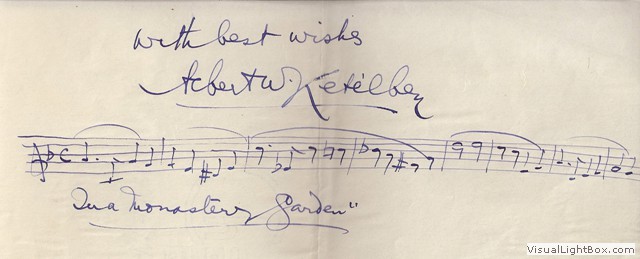 with best wishes
Albert W. Ketèlbey
In a Monastery Garden"
VisualLightBox.com